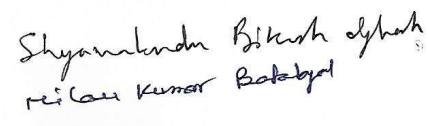 Shyamalendu Bikash Ghosh
Milan Kumar Batabyal